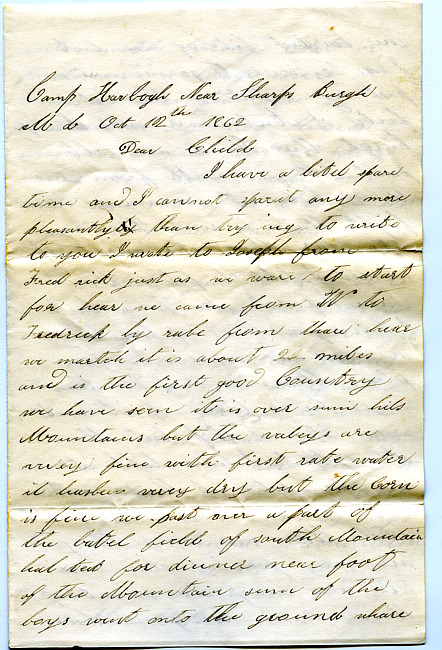 Camp Harbogh Near Sharps Burgh
Md Oct 12th 1862
Dear Child
I have a litel spare
time and I cannot spend any more
pleasantly than try ing to write
to you I wrote to Joseph from
Fred rick just as we ware to start
for hear we came from W to
Fredrick by rale from thare hear
we martch it is about 22 miles
and is the first good Country
we have seen it is over sum hils
Mountains but the valeys are
verey fine with first rate water
it has ben verey dry but the Corn
is fine we past over a part of
the batel field of South Mountain
hal ted for dinner near foot
of the Mountain sum of the
boys went onto the ground whare